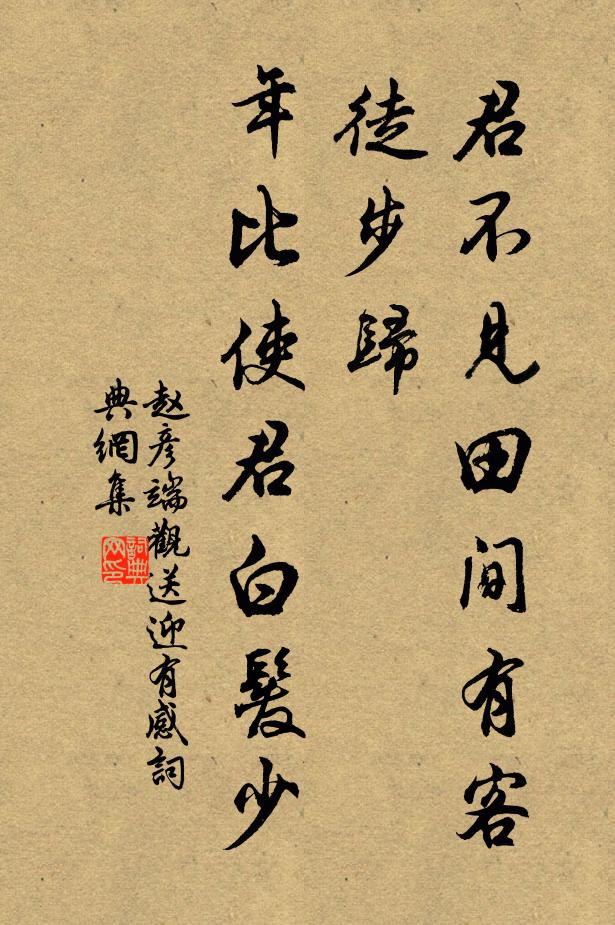 君不見田間有客
徒步歸
年比使君白髮少
赵彦端觀送迎有感詞
典網集
詞典
网印